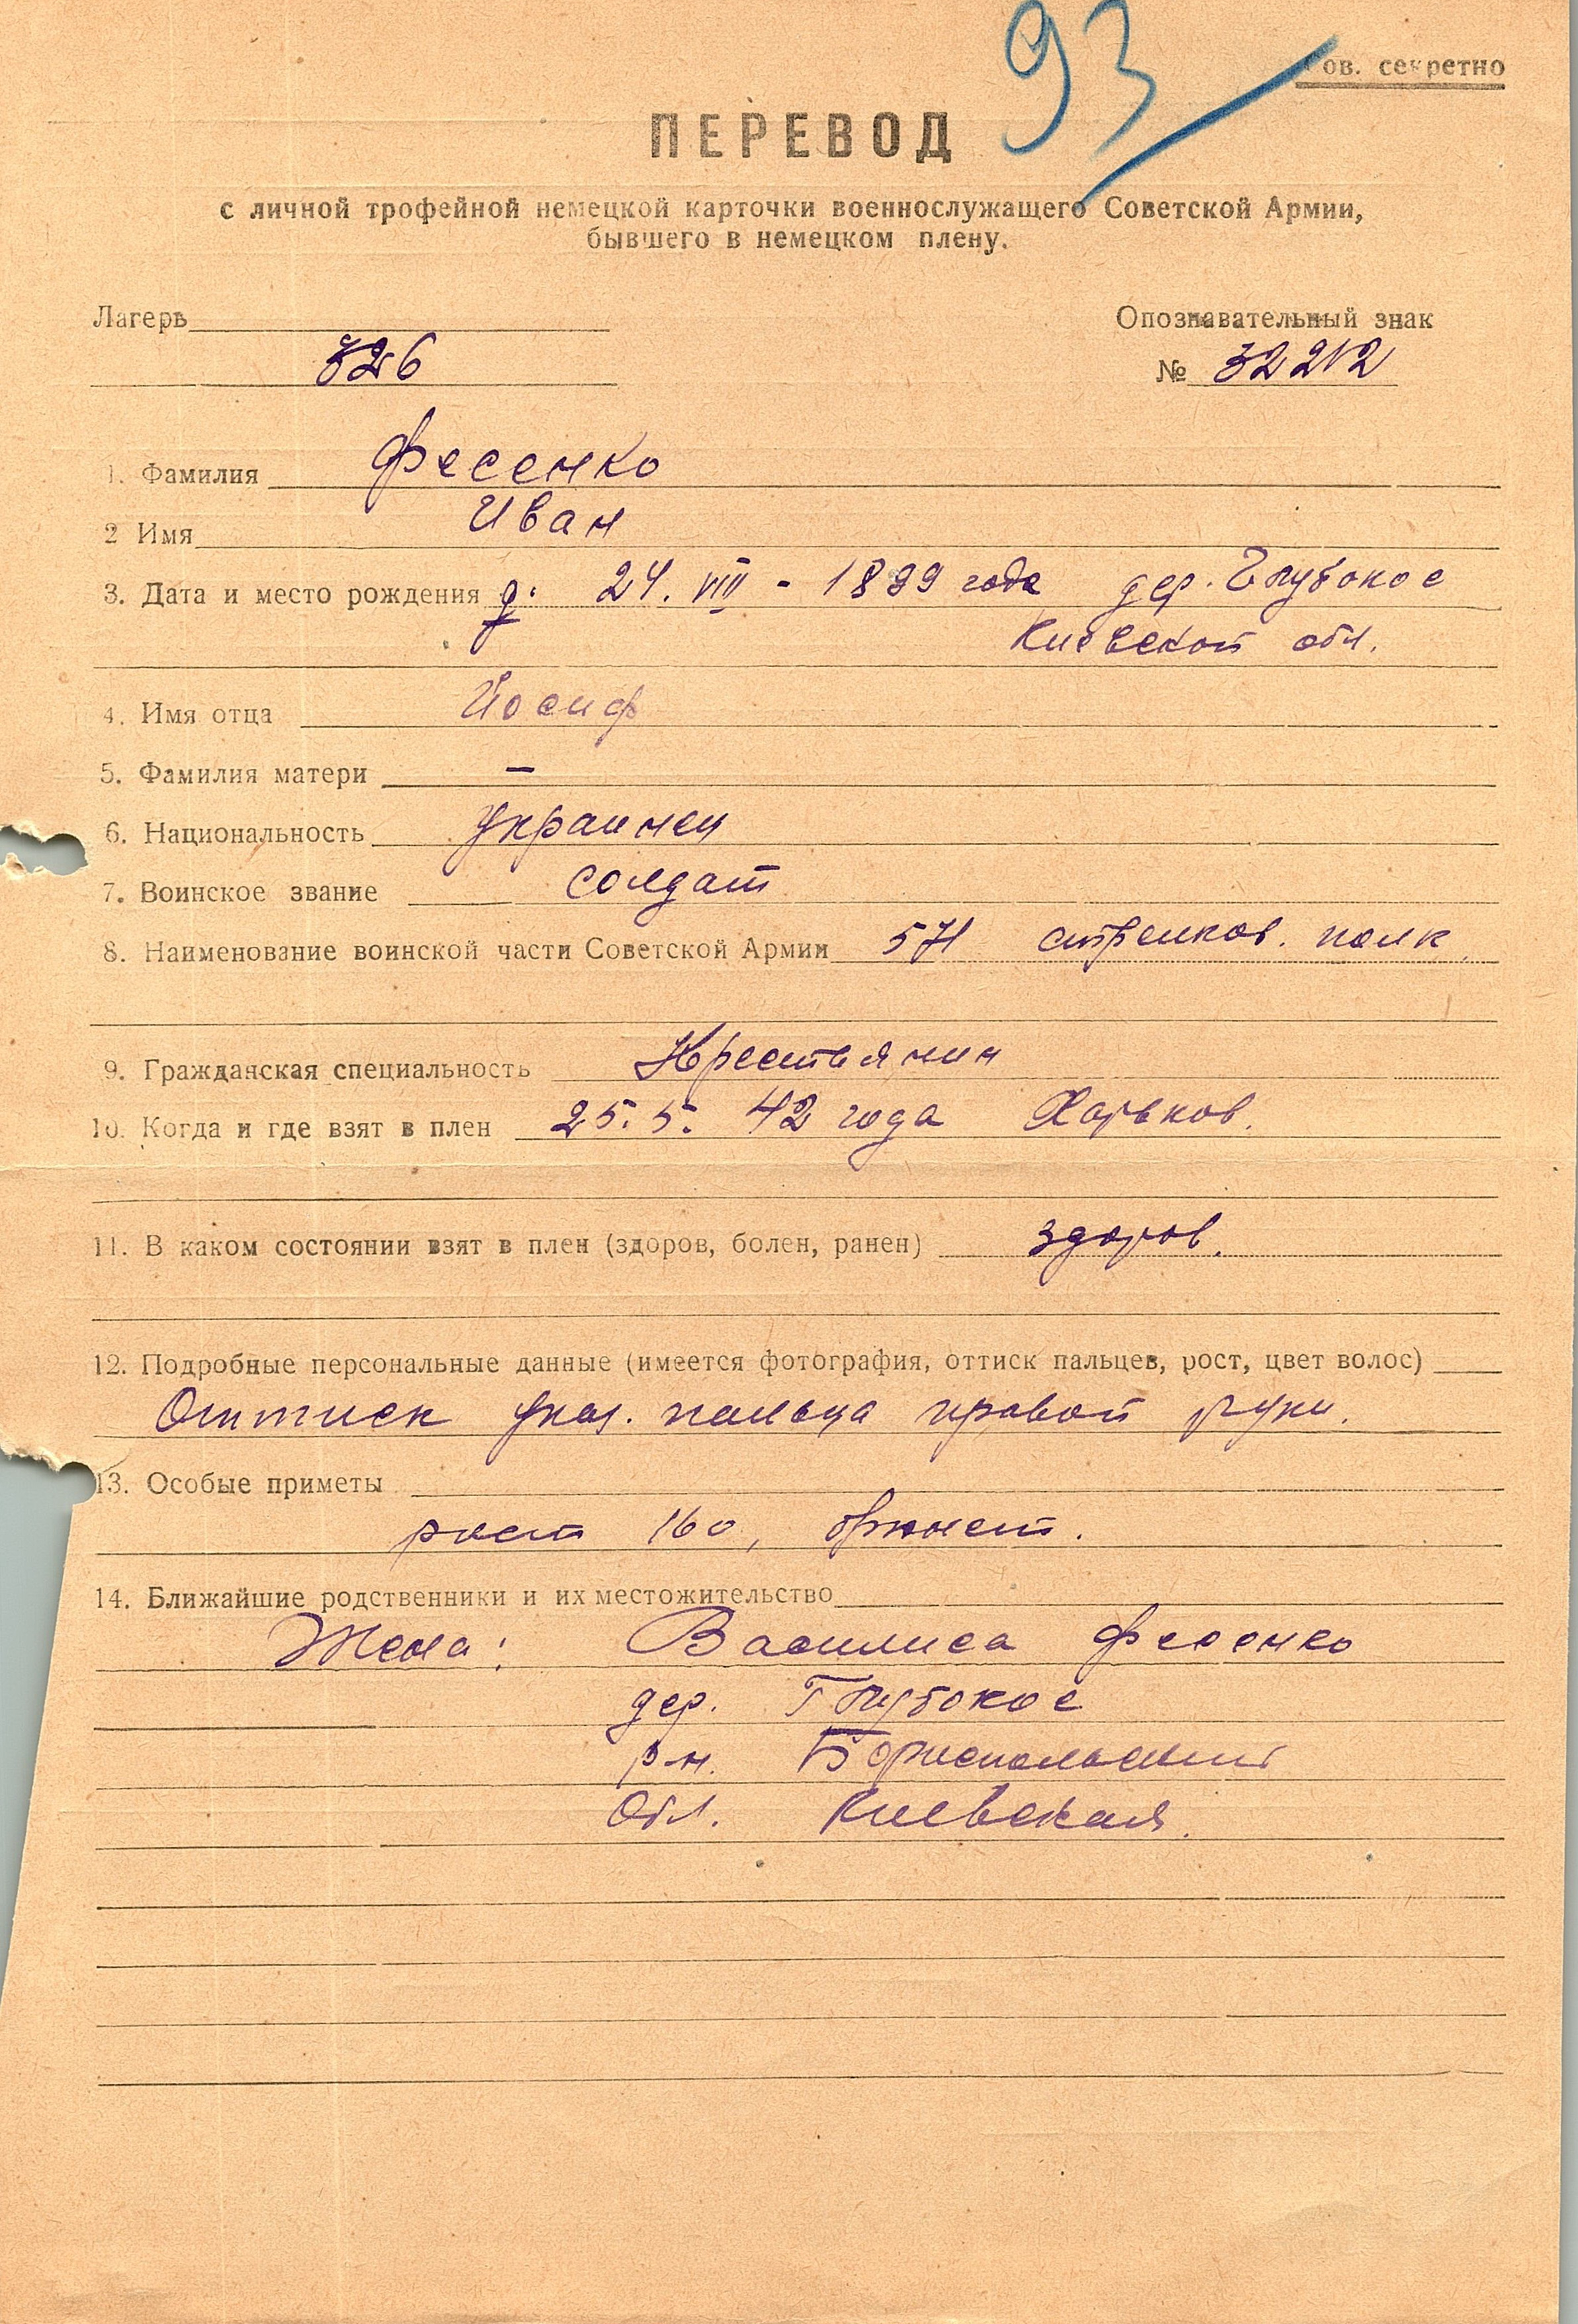 93
Сов. секретно
ПЕРЕВОД
с личной трофейной немецкой карточки военнослужащего Советской Армии,
бывшего в немецком плену.
Лагерь
Опознавательный знак
326
№ 32212
1. Фамилия Фесенко
2 Имя Иван
3. Дата и место рождения д. 24. VIII - 1899 года дер. Глубокое
Киевской обл.
4. Имя отца Йосиф
5. Фамилия матери —
6. Национальность Украинец
7. Воинское звание солдат
8. Наименование воинской части Советской Армии стрелков. полк
9. Гражданская специальность Крестьянин
10. Когда и где взят в плен 25. 5. 42 года Харьков.
11. В каком состоянии взят в плен (здоров, болен, ранен) здоров.
12. Подробные персональные данные (имеется фотография, оттиск пальцев, рост, цвет волос)
Оттиск указ. пальца правой руки.
13. Особые приметы
рост 160, брюнет.
14. Ближайшие родственники и их местожительство
Жена: Василиса Фесенко
дер. Глубокое
р-н. Бориспольский
Обл. Киевская.